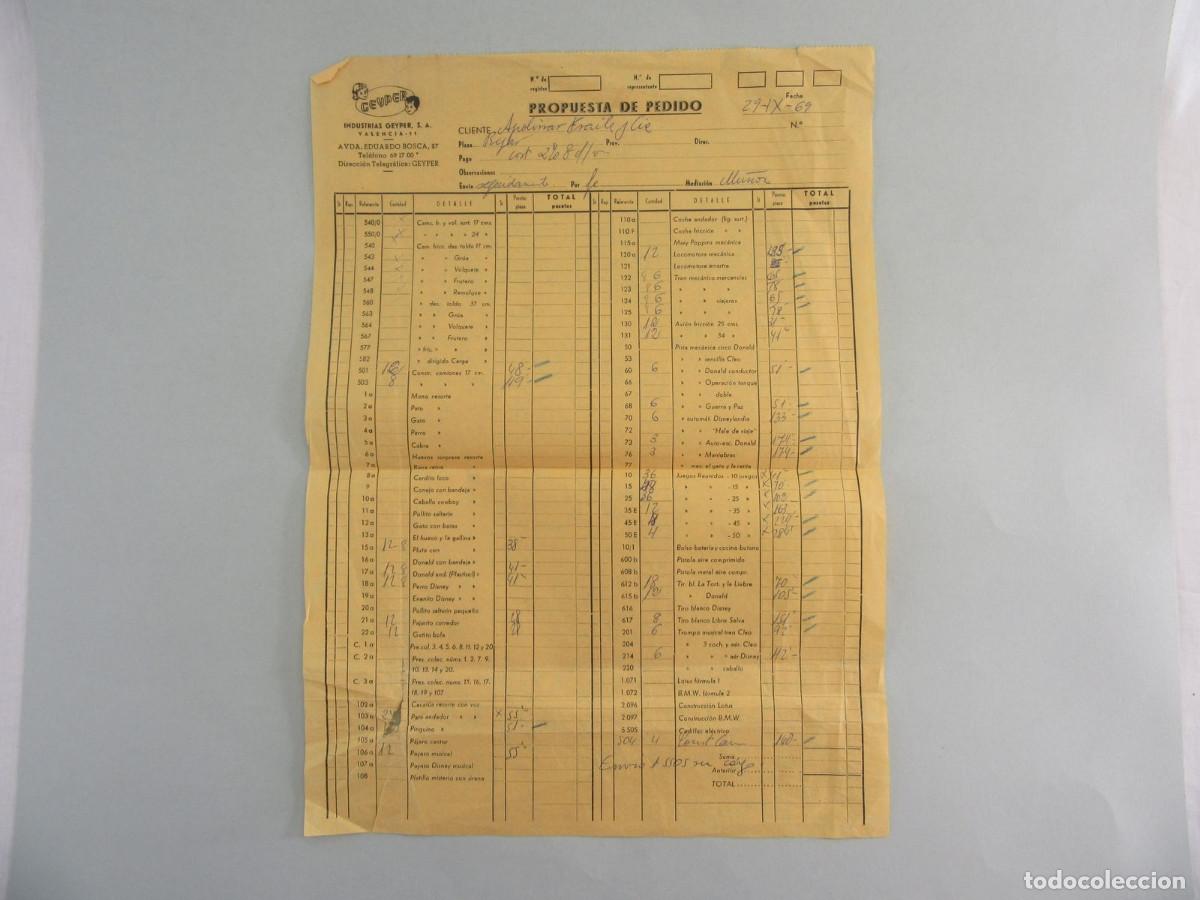 GEYPER
INDUSTRIAS GEYPER, S. A.
VALENCIA-11
AVDA. EDUARDO BOSCA, 57
Teléfono 69 17 00*
Dirección Telegráfica: GEYPER
N.º de registro
N.º de representante
PROPUESTA DE PEDIDO
Fecha
29-IX-69
CLIENTE
N.º
Plaza
Prov.
Direc.
Pago
Observaciones
Envío seguidamente Por fc Mediación Muñoz
Sr. Rep. Referencia Cantidad DETALLE Sr. Pesetas pieza TOTAL pesetas
540/0 Cams. b. y vol. surt. 17 cms.
550/0 » » » » 24 »
540 Cam. fricc. des. toldo 17 cm.
543 » » Grúa »
544 » » Volquete »
547 » » Frutero »
548 » » Remolque »
560 » des. toldo 37 cm.
563 » » Grúa »
564 » » Volquete »
567 » » Frutero »
577 » fric. » » »
582 » dirigido Carga »
501 Constr. camiones 17 cm. 48-
503 8 » » » 119-
1 a Mono resorte
2 a Pato »
3 a Gato »
4 a Perro »
5 a Cabra »
6 a Huevos sorpresa resorte
7 a
8 a Cerdito loco »
9 Conejo con bandeja »
10 a Caballo cowboy »
11 a Pollito saltarín »
12 a Gato con botas »
13 a El huevo y la gallina »
15 a 12 8 Pluto con » 38-
16 a Donald con bandeja »
17 a 12 8 Donald and. (Plastisol) » 41-
18 a 12 8 Perro Disney » » 41-
19 a Enanito Disney » »
20 a Pollito saltarín pequeño
21 a 12 Pajarito corredor 28
22 a 12 Gatito bola 28
C. 1 a Pre.col. 3, 4, 5, 6, 8, 11, 12 y 20.
C. 2 a Pres. colec. núms. 1, 2, 7, 9, 10, 13, 14 y 20.
C. 3 a Pres. colec. nums. 15, 16, 17, 18, 19 y 107.
102 a Corazón resorte con voz
103 b Pato andador » » x 55
104 a Pingüino » » 51-
105 a Pájaro cantor
106 a 12 Pájaro musical 55
107 a Pájaro Disney musical
108 Platillo misterio con sirena
Sr. Rep. Referencia Cantidad DETALLE Sr. Pesetas pieza TOTAL pesetas
110 a Coche andador (fig. surt.)
110 F Coche fricción » »
115 a Mary Poppins mecánica
120 a 12 Locomotora mecánica
121 Locomotora arrastre
122 6 Tren mecánico mercancías
123 6 » » » 78
124 6 » » viajeros 65
125 6 » » » 78-
130 Avión fricción 25 cms. 31-
131 12 » » 34 » 41-
50 Pista mecánica circo Donald
53 » » sencilla Cleo
60 6 » » Donald conductor 51-
66 » » Operación tanque
67 » » doble
68 6 » » Guerra y Paz 51-
70 6 » automát. Disneylandia 133-
72 » » "Hale de viaje"
73 3 » » Auto-esc. Donald 174-
76 3 » » Maniobras 174-
77 » mec. el gato y la ratita
10 36 Juegos Reunidos - 10 juegos x
15 » » - 15 » x 70-
25 » » - 25 »
35 E 12 » » - 35 »
45 E » » - 45 »
50 E 4 » » - 50 » x 286
10/1 Bolso batería y cocina butano
600 b Pistola aire comprimido
608 b Pistola metal aire compr.
612 b 18 Tir. bl. La Tort. y la Liebre 70
615 b » Donald 105-
616 Tiro blanco Disney
617 8 Tiro blanco Libre Selva
201 6 Trompo musical tren Cleo
204 » » 3 coch. y aér. Cleo
214 6 » » » aér. Disney 112-
230 » » » caballo
1.071 Lotus fórmula 1
1.072 B.M.W. fórmula 2
2.096 Construcción Lotus
2.097 Construcción B.M.W.
5.505 Cadillac eléctrico
504 4 Const Cam 140-
Suma
Anterior
TOTAL
todocoleccion